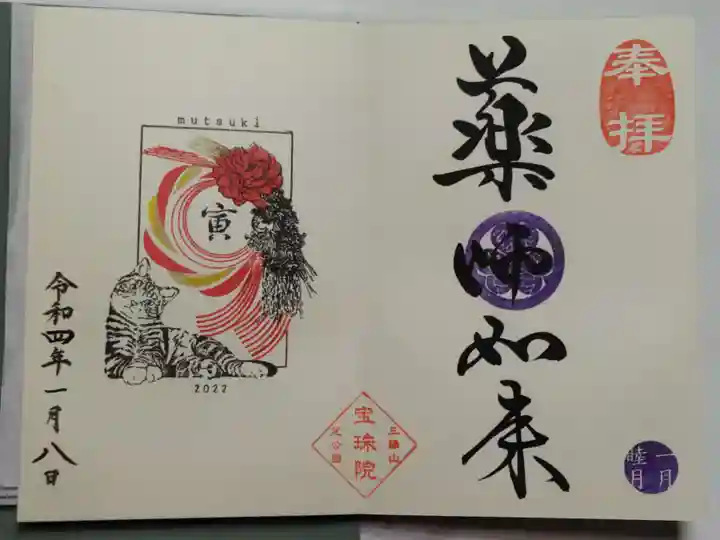 奉拝
薬師如来
一月
睦月
mutsuki
寅
2022
三縁山
宝珠院
芝公園
令和四年一月八日